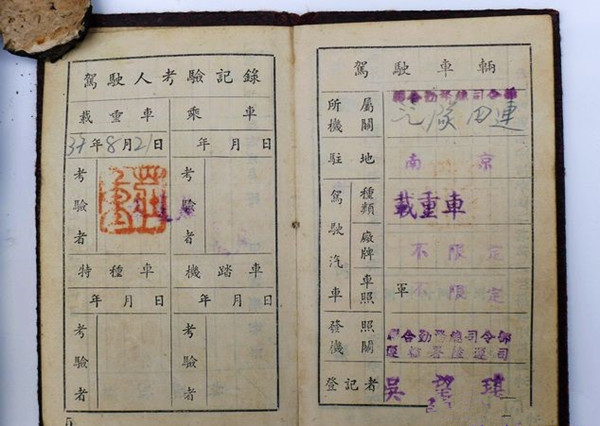 駕駛人考驗記錄
載重車
37年8月21日
考驗者
乘車
年月日
考驗者
特種車
年月日
考驗者
機踏車
年月日
考驗者
駕駛車輛
所屬機關
聯合勤務總司令部
汽 四連
駐地
南京
駕駛汽車
種類
載重車
廠牌
不限定
車照
軍
不限定
發照機關
聯合勤務總司令部
運輸署 運 司
登記者
吳